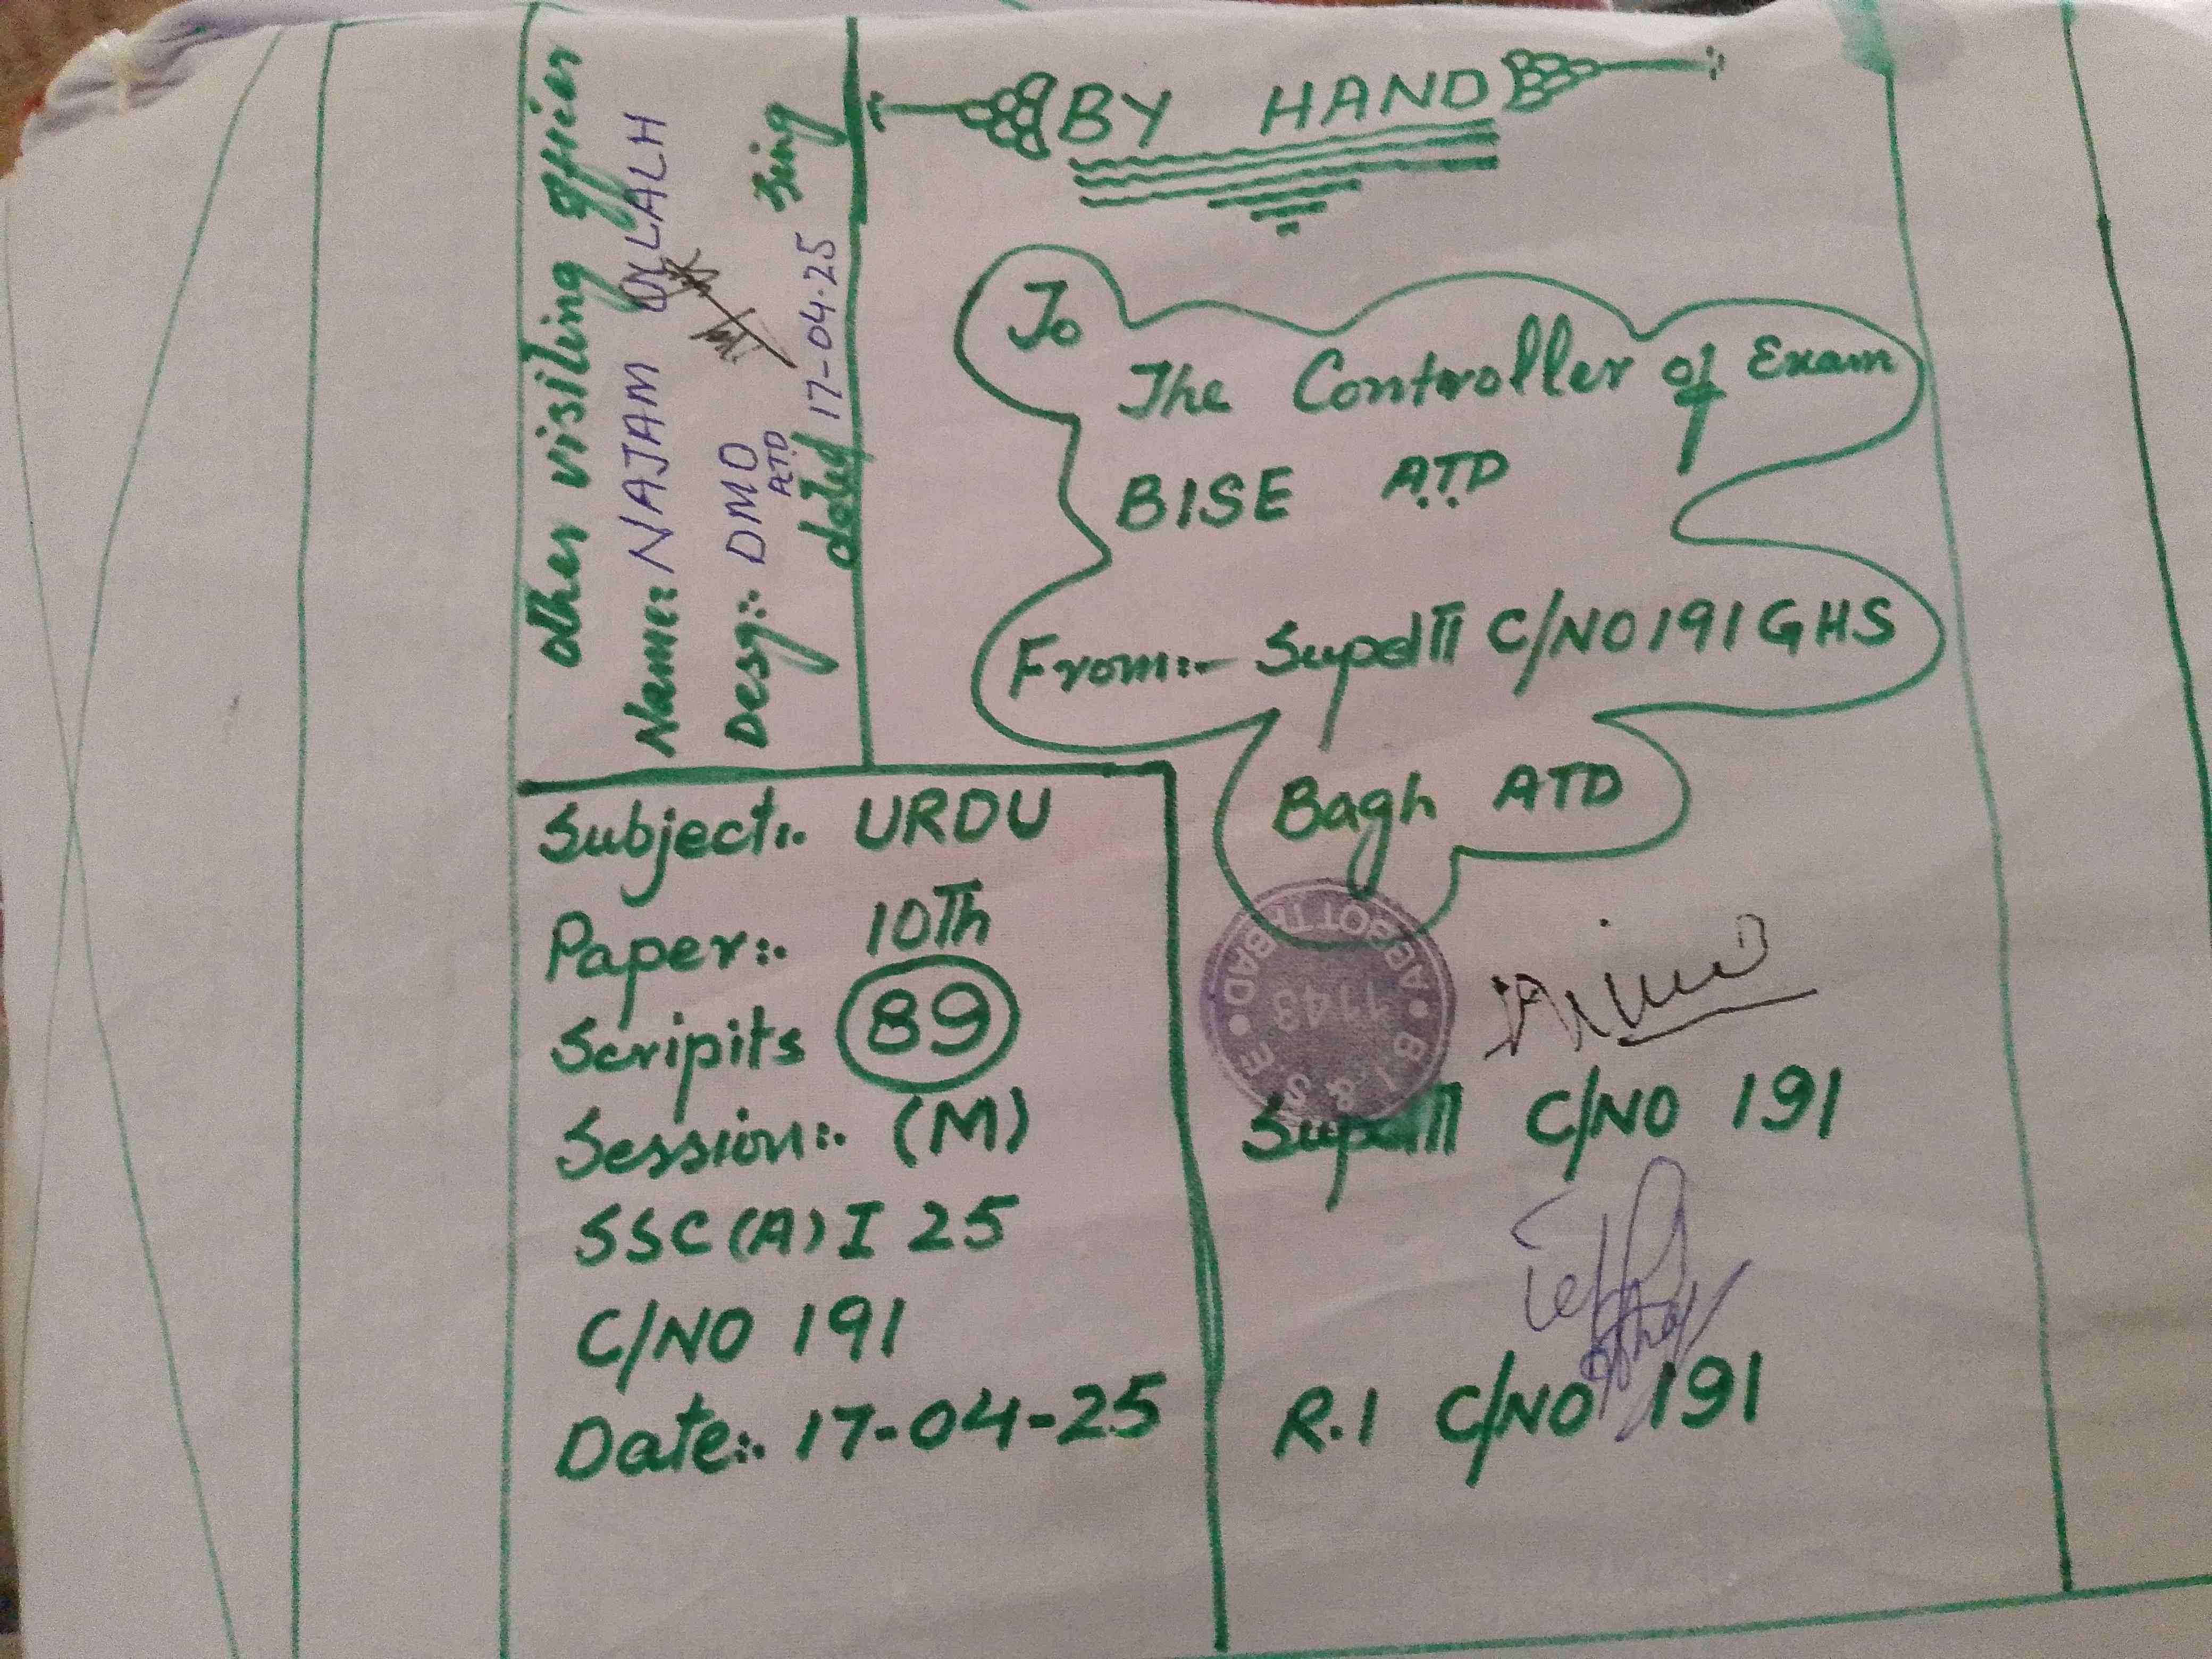 BY HAND
To
The Controller of Exam
BISE A.T.D
From:- Supdtt C/NO 191 GHS
Bagh ATD
other visiting officer
Name: NAJAM ULLALH
Desg:. DMO
ATD
dated 17-04-25
Subject:. URDU
Paper:. 10Th
Scripits 89
Session:. (M)
SSC (A) I 25
C/NO 191
Date:. 17-04-25
B.I. & S.E • ABBOTTABAD •
1143
Supdtt C/NO 191
R.I C/NO 191